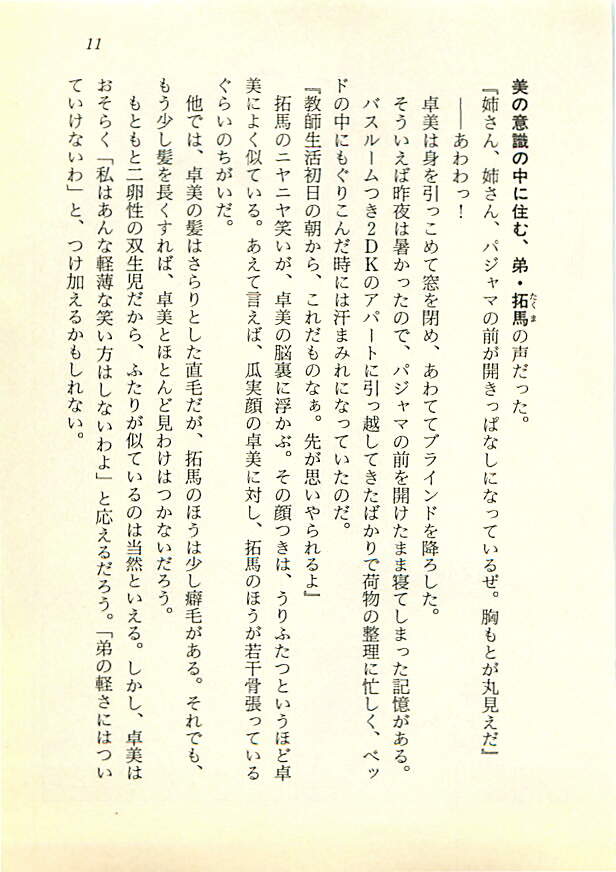 11
美の意識の中に住む、弟・拓馬の声だった。
『姉さん、姉さん、パジャマの前が開きっぱなしになっているぜ。胸もとが丸見えだ』
――あわわっ！
卓美は身を引っこめて窓を閉め、あわててブラインドを降ろした。
そういえば昨夜は暑かったので、パジャマの前を開けたまま寝てしまった記憶がある。
バスルームつき2DKのアパートに引っ越してきたばかりで荷物の整理に忙しく、ベッ
ドの中にもぐりこんだ時には汗まみれになっていたのだ。
『教師生活初日の朝から、これだものなぁ。先が思いやられるよ』
拓馬のニヤニヤ笑いが、卓美の脳裏に浮かぶ。その顔つきは、うりふたつというほど卓
美によく似ている。あえて言えば、瓜実顔の卓美に対し、拓馬のほうが若干骨張っている
ぐらいのちがいだ。
他では、卓美の髪はさらりとした直毛だが、拓馬のほうは少し癖毛がある。それでも、
もう少し髪を長くすれば、卓美とほとんど見わけはつかないだろう。
もともと二卵性の双生児だから、ふたりが似ているのは当然といえる。しかし、卓美は
おそらく「私はあんな軽薄な笑い方はしないわよ」と応えるだろう。「弟の軽さにはつい
ていけないわ」と、つけ加えるかもしれない。